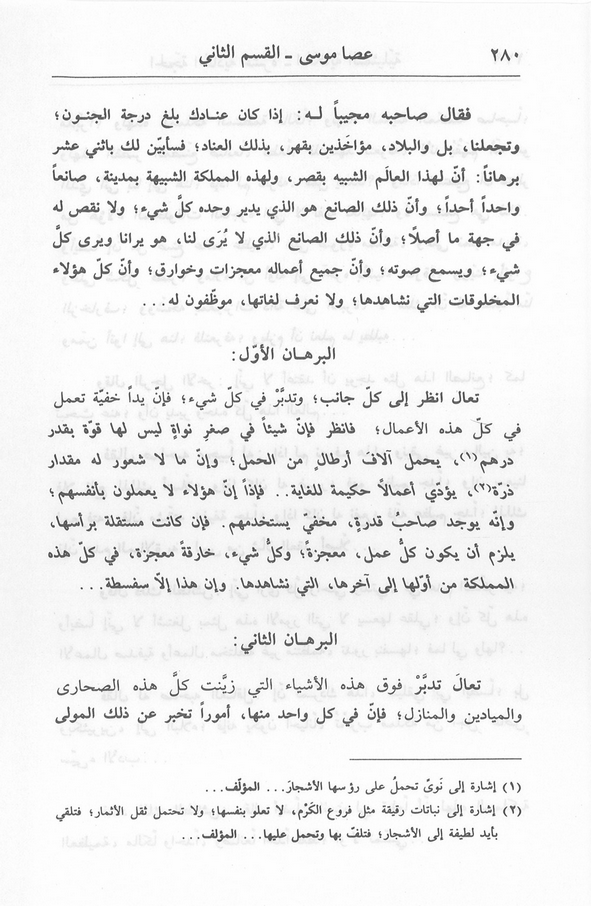 ٢٨٠ عصا موسى ـ القسم الثاني
فقال صاحبه مجيباً لـه: إذا كان عنادك بلغ درجة الجنـون؛
وتجعلنا، بل والبلاد، مؤاخَذين بقهر، بذلك العناد؛ فسأبيّن لك باثني عشر
برهاناً: أنّ لهذا العالَم الشبيه بقصر، ولهذه المملكة الشبيهة بمدينة، صانعاً
واحداً أحداً؛ وأنّ ذلك الصانع هو الذي يدير وحده كلَّ شيء؛ ولا نقص له
في جهة ما أصلاً؛ وأنّ ذلك الصانع الذي لا يُرَى لنا، هو يرانا ويرى كلَّ
شيء؛ ويسمع صوته؛ وأنّ جميع أعماله معجزات وخوارق؛ وأنّ كلّ هؤلاء
المخلوقات التي نشاهدها؛ ولا نعرف لغاتها، موظّفون له...
البرهـان الأوّل:
تعال انظر إلى كلّ جانب؛ وتدبَّرْ في كلّ شيء؛ فإنّ يداً خفيّة تعمل
في كلّ هذه الأعمال؛ فانظر فإنّ شيئاً في صغر نواةٍ ليس لها قوّة بقدر
درهم(١)، يحمل آلافَ أرطالٍ من الحمل؛ وإنّ ما لا شعور له مقدار
ذرّة(٢)، يؤدّي أعمالاً حكيمة للغاية.. فإذاً إنّ هؤلاء لا يعملون بأنفسهم؛
وإنّه يوجد صاحبُ قدرةٍ، مخفيّ يستخدمهم. فإن كانت مستقلة برأسها،
يلزم أن يكون كلُّ عمل، معجزةً؛ وكلُّ شيء، خارقة معجزة، في كلّ هذه
المملكة من أوّلها إلى آخرها، التي نشاهدها. وإن هذا إلاّ سفسطة...
البرهـان الثاني:
تعالَ تدبَّرْ فوق هذه الأشياء التي زيَّنت كلَّ هذه الصحارى
والميادين والمنازل؛ فإنّ في كل واحد منها، أموراً تخبر عن ذلك المولى
(١) إشارة إلى نَوىً تحملُ على رؤسها الأشجارَ... المؤلّف...
(٢) إشارة إلى نباتات رقيقة مثل فروع الكَرْم، لا تعلو بنفسها؛ ولا تحتمل ثقل الأثمار؛ فتلقي
بأيد لطيفة إلى الأشجار؛ فتلفّ بها وتحمل عليها... المؤلف...